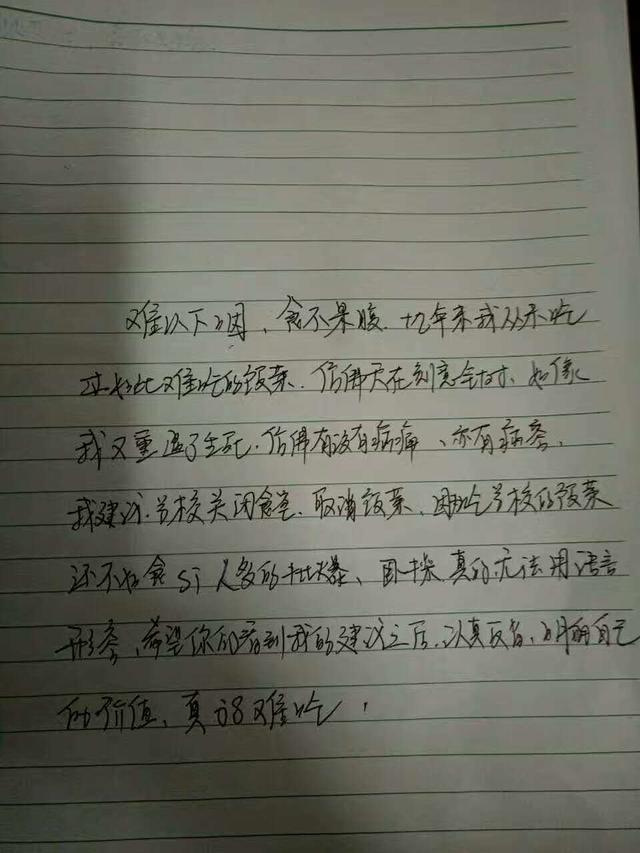 难以下咽、食不果腹.十九年来我从未吃
过如此难吃的饭菜.仿佛天在刻意针对.好像
我又重温了生死.仿佛有没有病痛、亦有病
我建议.学校关闭食堂.取消饭菜.因为吃学校的饭菜
还不如食si人多的卧槽真的无法用语言
形容、希望你们看到我的建议之后.认真反省、明确自己
的价值、真的难吃.